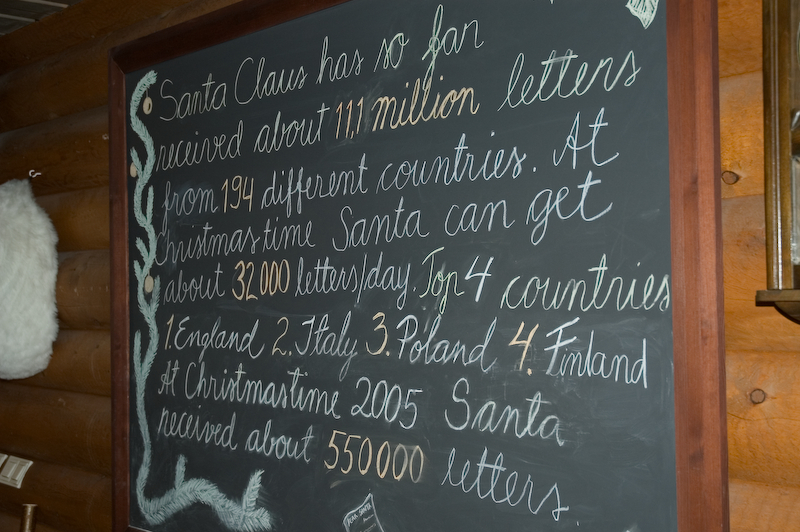 Santa Claus has so far
received about 11,1 million letters
from 194 different countries. At
Christmastime Santa can get
about 32 000 letters/day. Top 4 countries
1. England 2. Italy 3. Poland 4. Finland
At Christmastime 2005 Santa
received about 550 000 letters.
DEAR SANTA